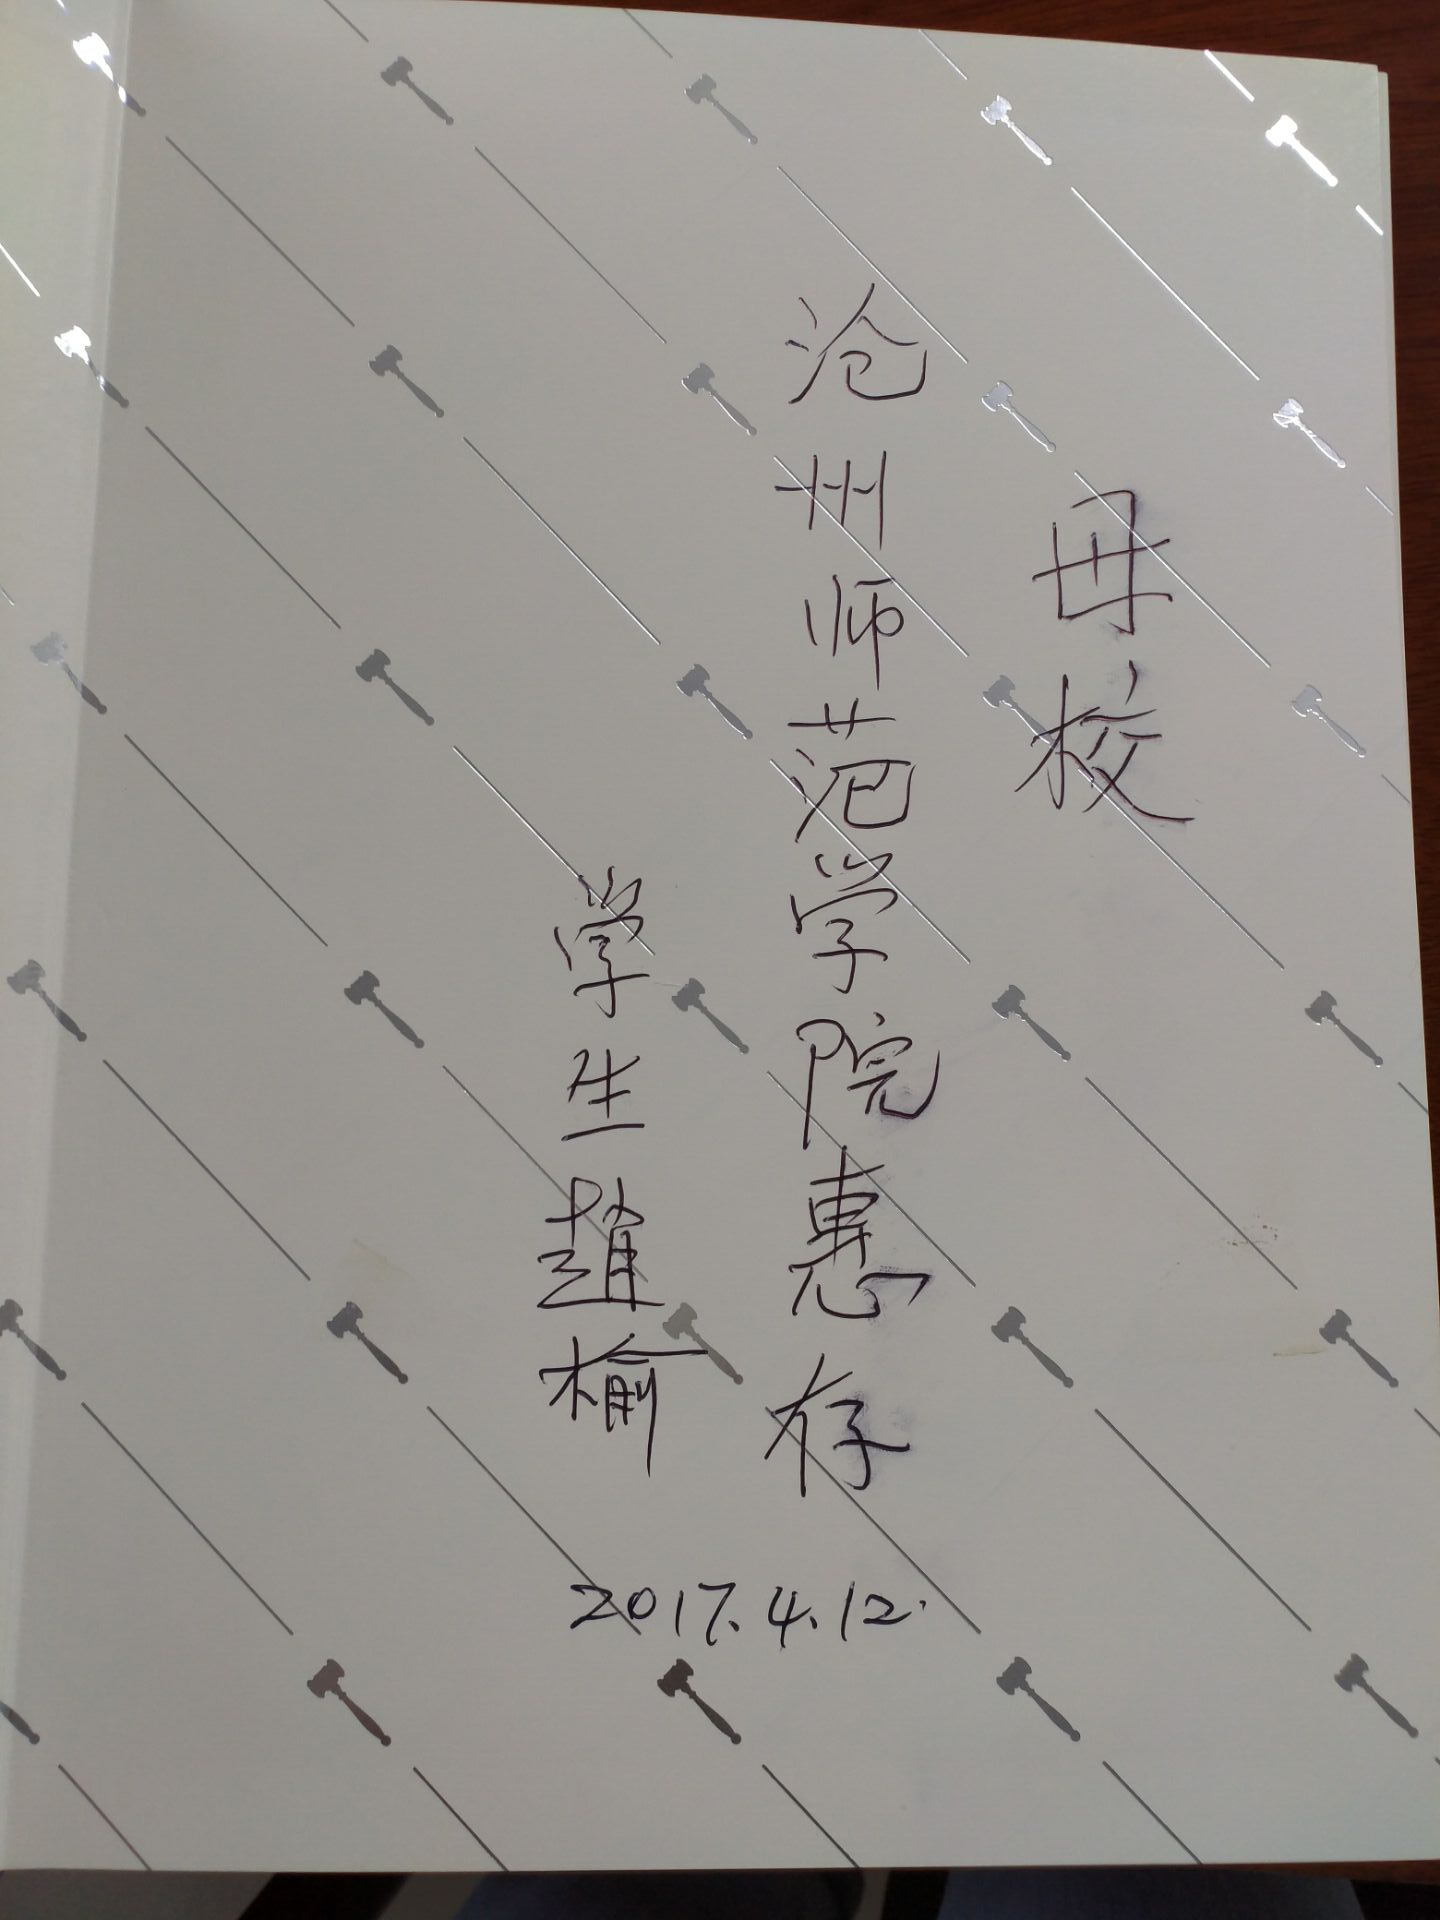 母校
沧州师范学院惠存
学生趙榆
2017.4.12.